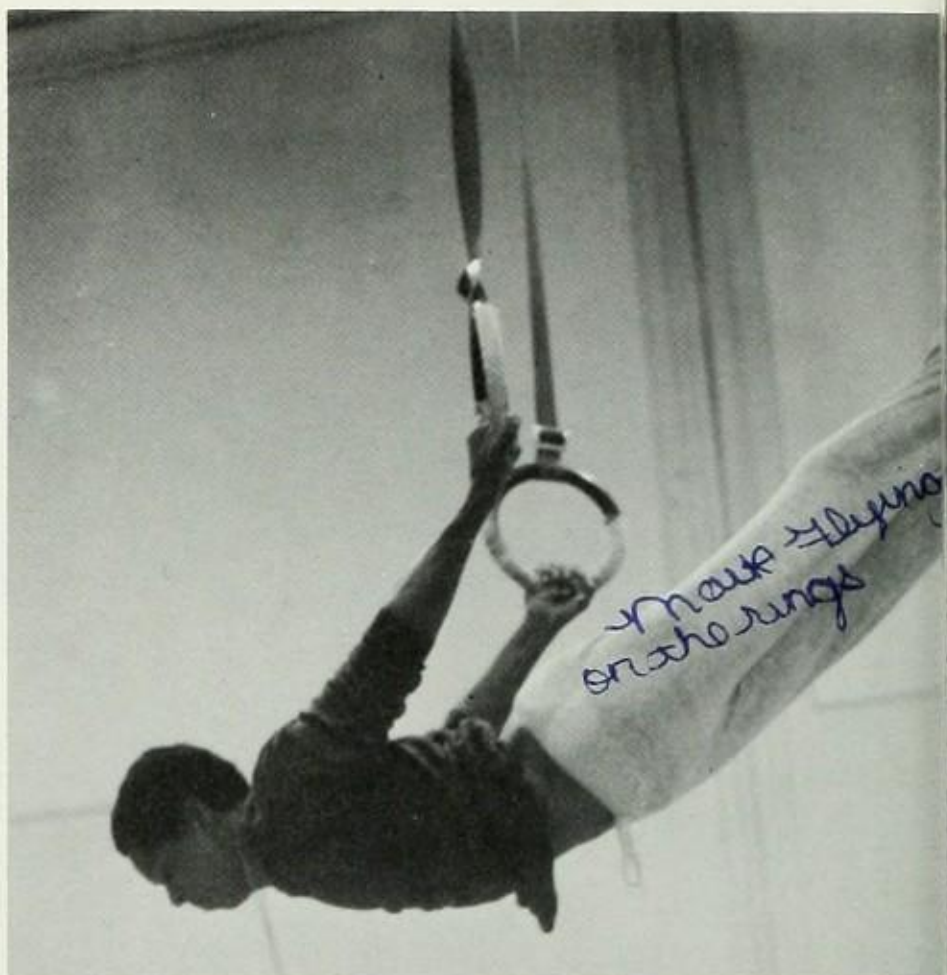 Mark Flying
on the rings